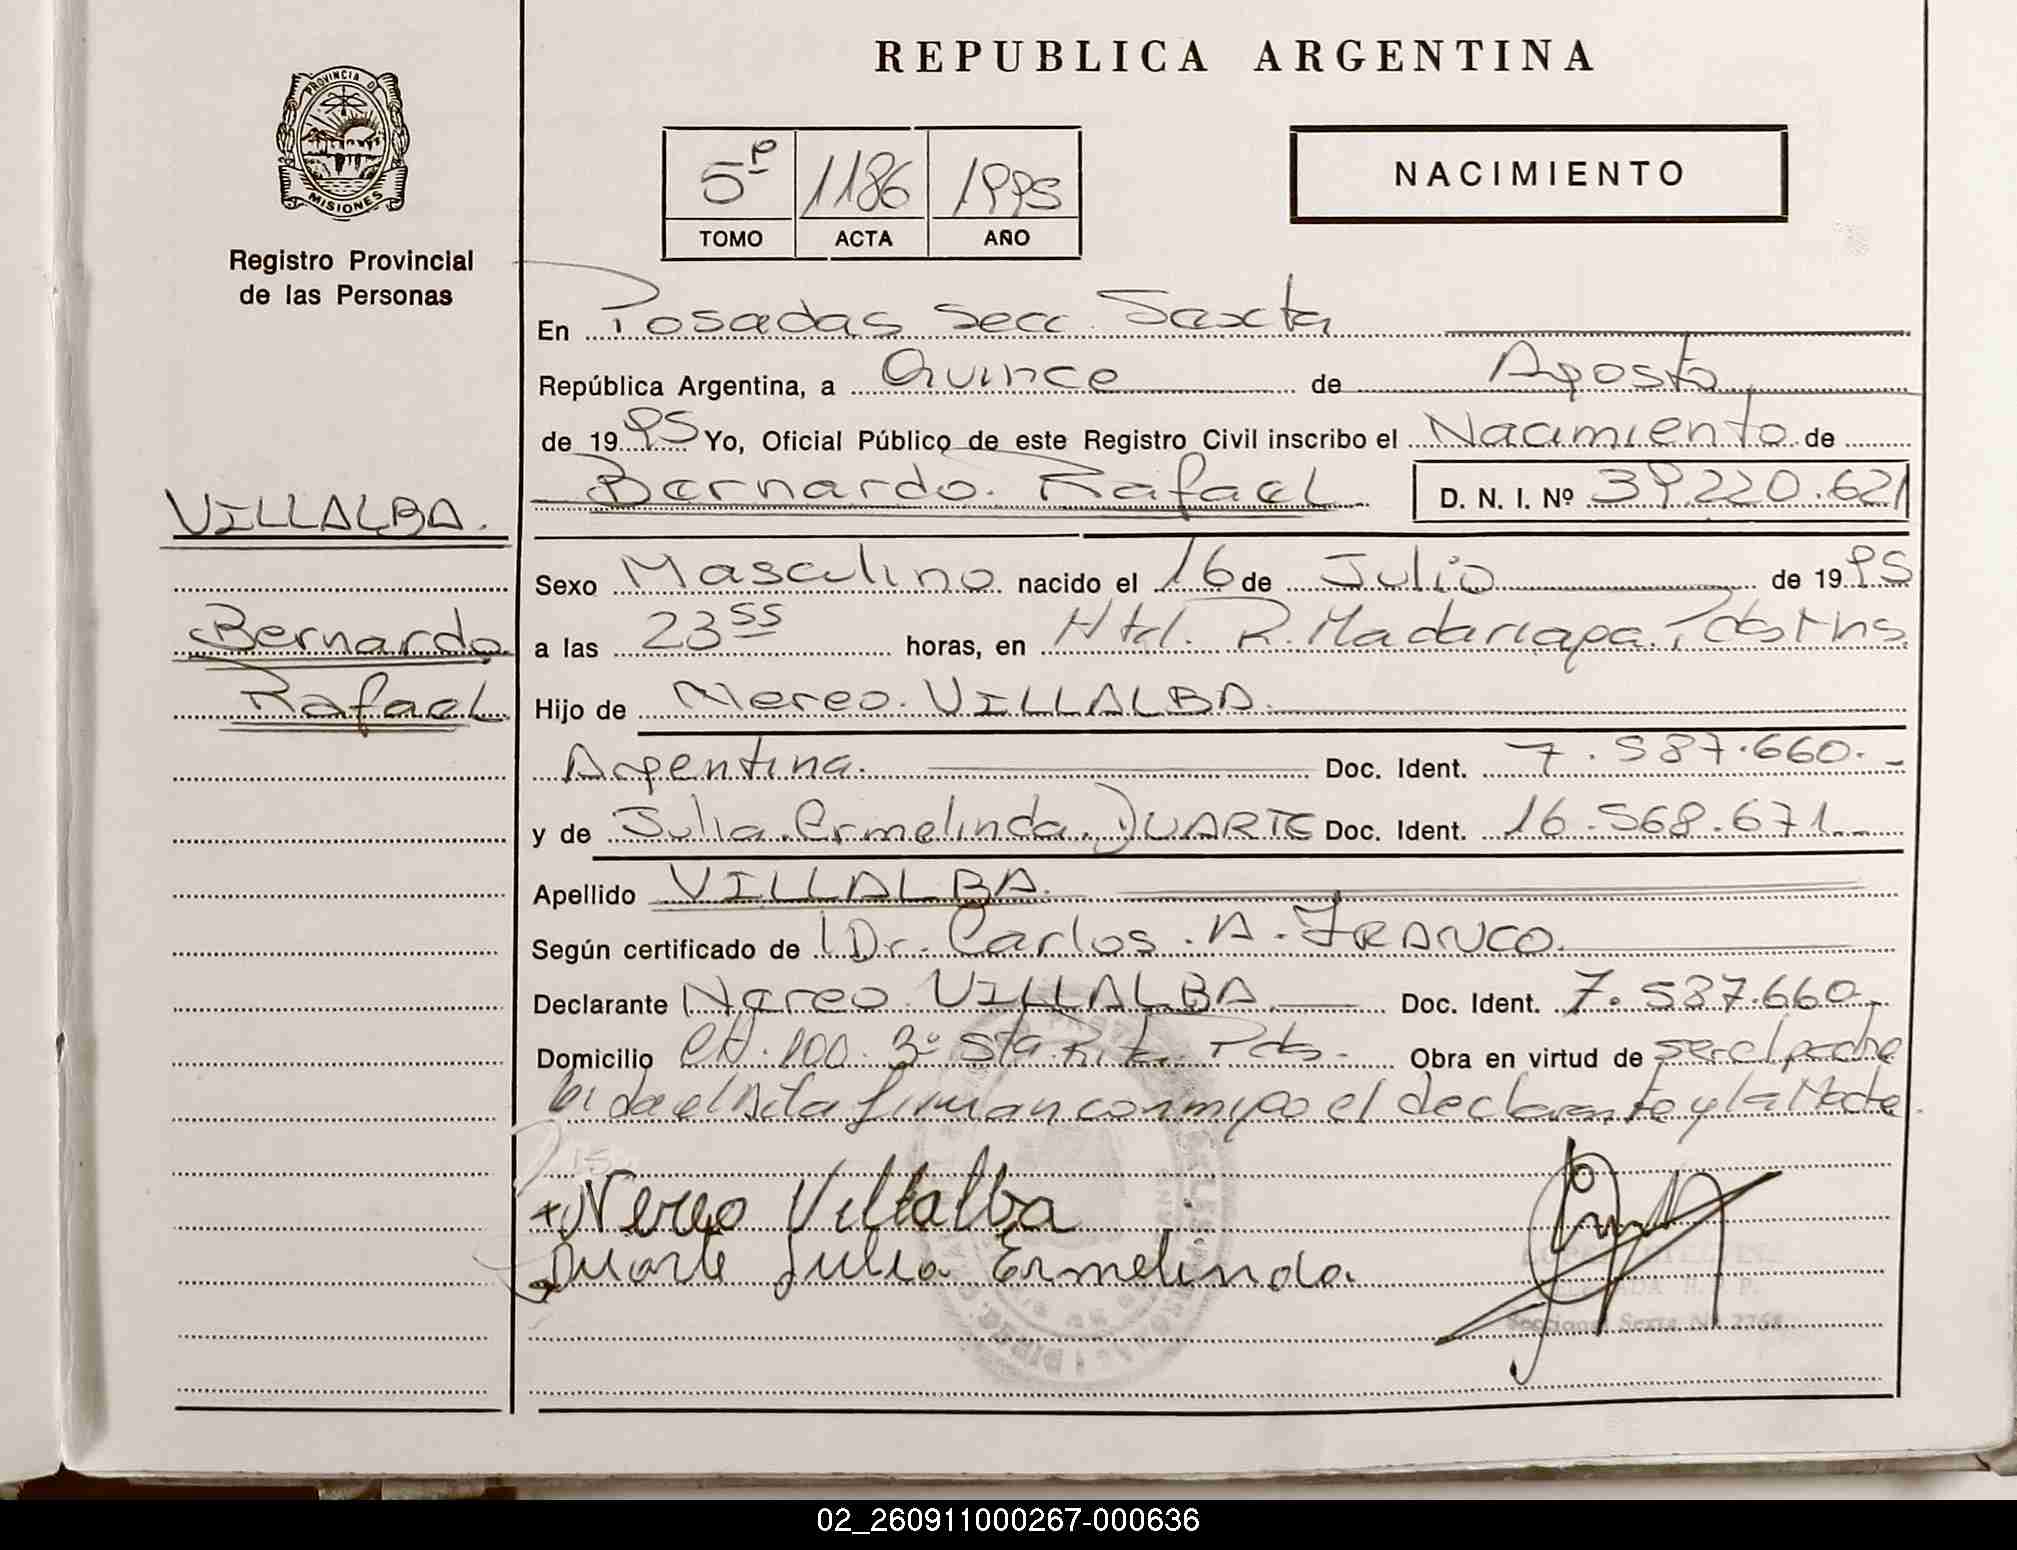 REPUBLICA ARGENTINA
PROVINCIA DE
MISIONES
Registro Provincial
de las Personas
5º 1186 1995
TOMO ACTA AÑO
NACIMIENTO
En Posadas Secc. Sexta
República Argentina, a Quince de Agosto
de 1995 Yo, Oficial Público de este Registro Civil inscribo el Nacimiento de
Bernardo Rafael D. N. I. Nº 39.220.621
VILLALBA.
Bernardo
Rafael
Sexo Masculino nacido el 16 de Julio de 1995
a las 23 55 horas, en Htal. R. Madariaga. Pdas Mns.
Hijo de Nereo VILLALBA
Argentina. Doc. Ident. 7.537.660.-
y de Julia Ermelinda DUARTE Doc. Ident. 16.568.671.-
Apellido VILLALBA.
Según certificado de Dr. Carlos A. FRANCO.
Declarante Nereo VILLALBA Doc. Ident. 7.537.660
Domicilio 100 3º Sta Rita Pdas.- Obra en virtud de ser el padre
el Acta firman conmigo el declarante y la Madre.
Nereo Villalba
Duarte Julia Ermelinda
Seccional Sexta Nº 2768
02_260911000267-000636